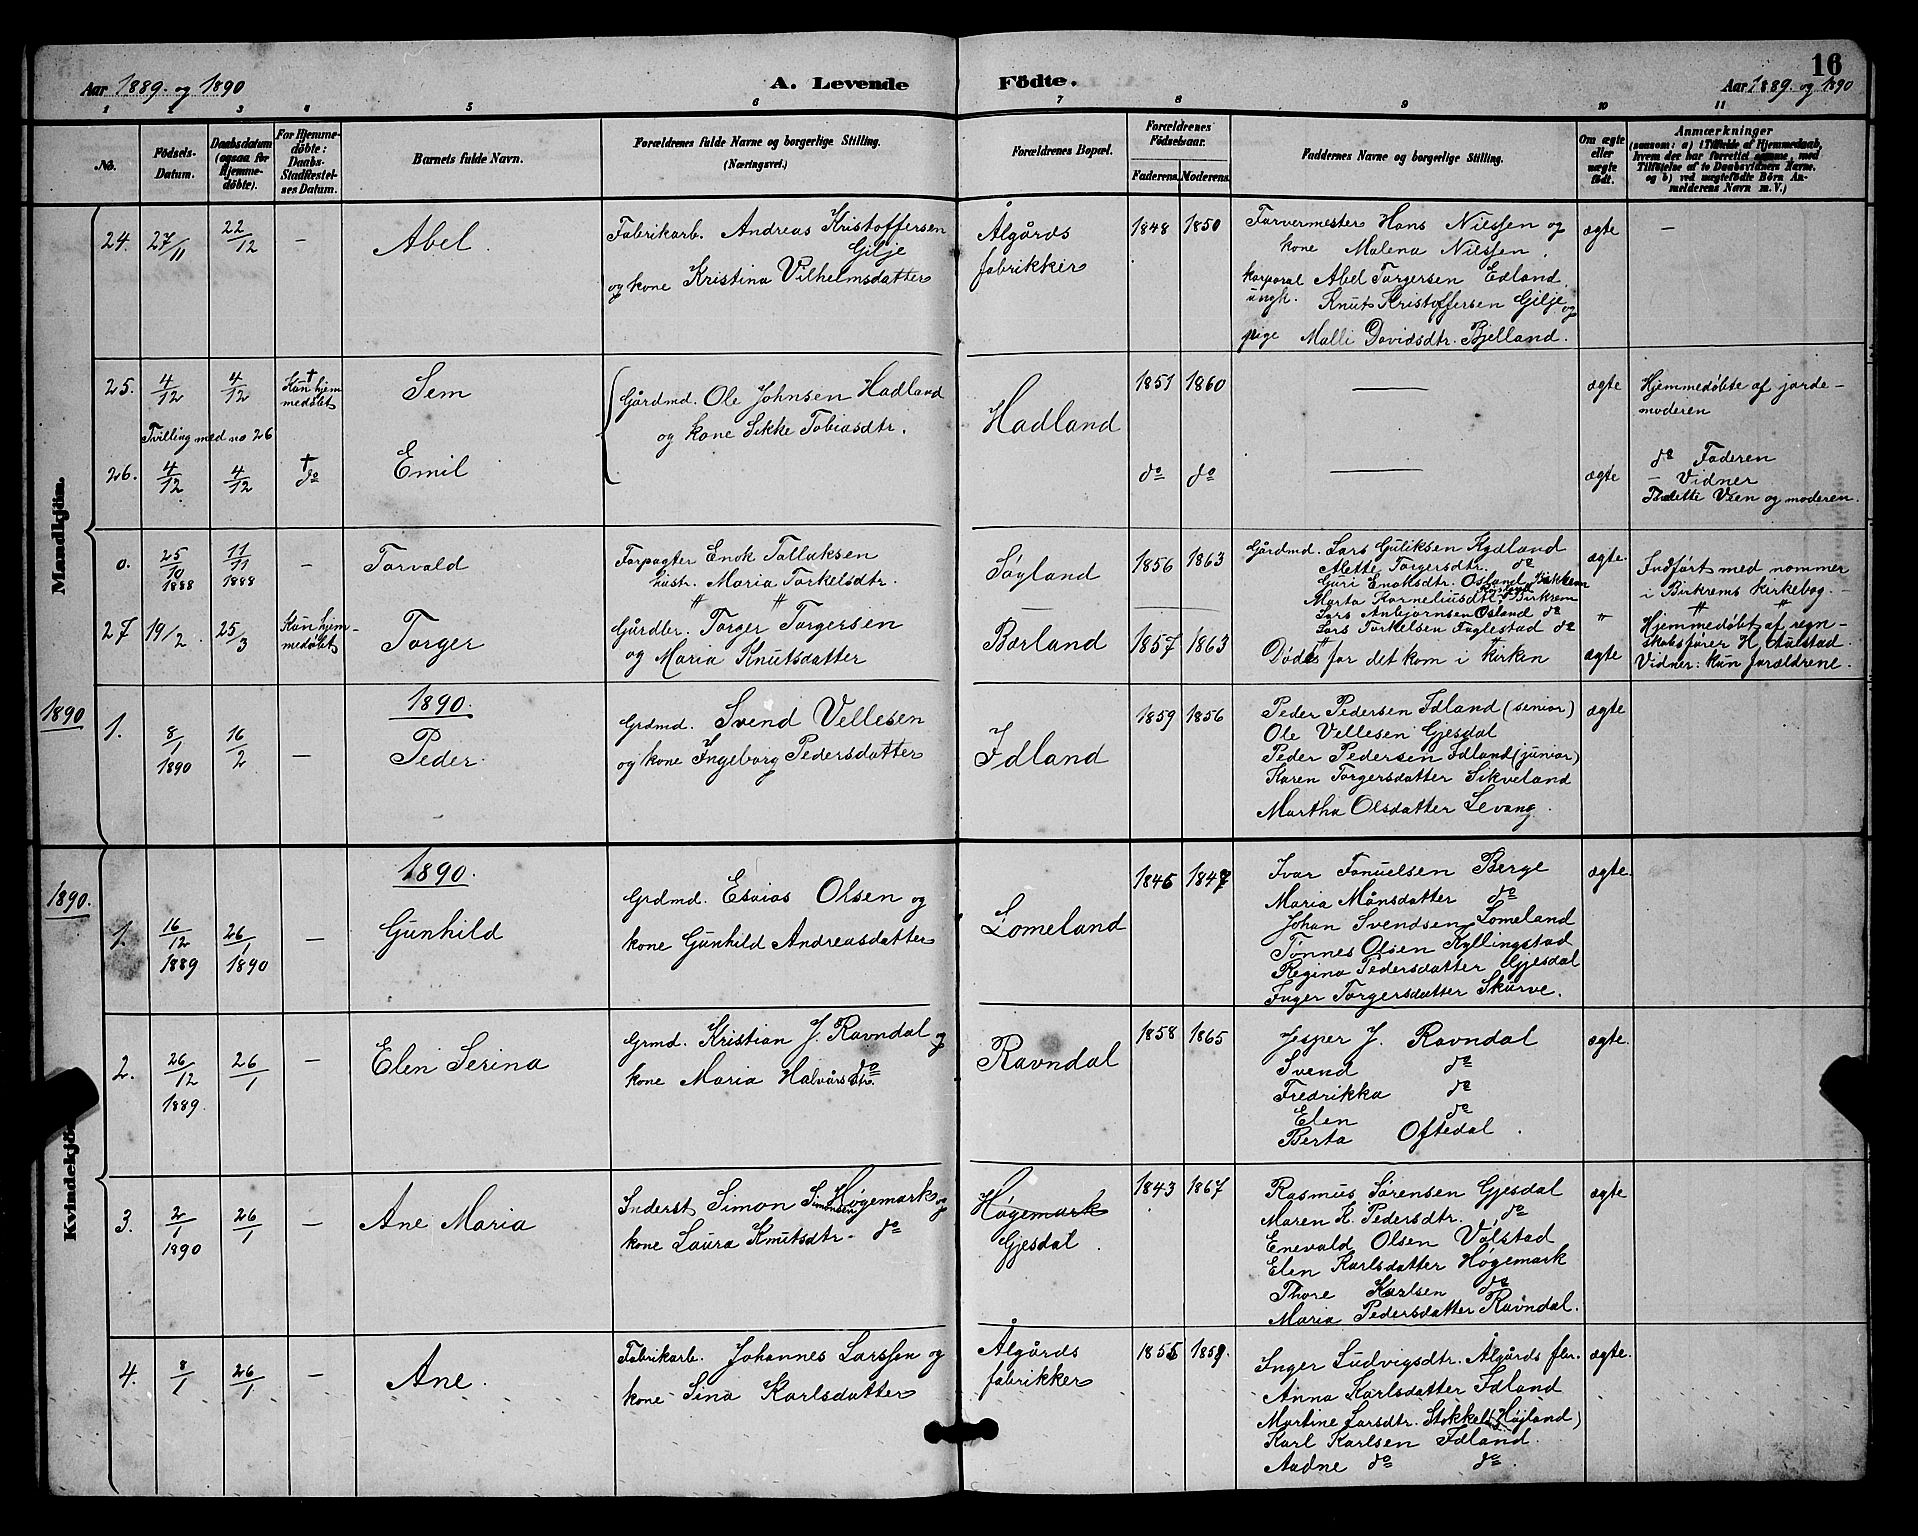 16
Aar 1889. og 1890
A. Levende
Födte.
Aar 1889. og 1890
1 2 3 4 5 6 7 8 9 10 11
No.
Födsels-
Datum.
Daabsdatum
(ogsaa for
Hjemme-
döbte).
For Hjemme-
döbte:
Daabs-
Stadfæstel-
ses Datum.
Barnets fulde Navn.
Forældrenes fulde Navne og borgerlige Stilling.
(Næringsvei.)
Forældrenes Bopæl.
Forældrenes
Födselsaar.
Faderens. Moderens.
Faddernes Navne og borgerlige Stilling.
Om ægte
eller
uægte
födt.
Anmærkninger
(saasom: a) i Tilfælde af Hjemmedaab,
hvem der har forrettet samme, med
Tilföielse af to Daabsvidners Navne,
og b) ved uægtefödte Börn An-
melderens Navn m. V.)
Mandkjön.
24. 27/11 22/12 — Abel.
Fabrikarb. Andreas Kristoffersen
Gilje
og kone Kristina Vilhelmsdatter
Ålgårds
fabrikker
1848 1850
Farvermester Hans Nilssen og
kone Malena Nilssen.
korporal Abel Torgersen Edland.
ungk. Knut Kristoffersen Gilje og
pige Malli Davidsdtr. Bjelland.
ægte —
25. 4/12 4/12 † Kun hjem
medøbt
Sem
Gårdmd. Ole Johnsen Hadland
og kone Sikke Tobiasdtr.
Hadland
1851 1860 —
ægte
Hjemmedøbte af jorde-
moderen
Tvilling med no 26
26. 4/12 4/12 † do
Emil
do do —
ægte
do Faderen
— Vidner
Thalette Veen og moderen.
0. 25/10 1888 11/11 1888 — Torvald
Forpagter Enok Tollaksen
hustr. Maria Torkelsdtr.
Søyland
1856 1863
Gårdmd. Lars Guliksen Kydland
Alette Torgersdtr. do
Guri Enoksdtr. Osland Birkrem
Marta Korneliusdtr. Birkrem
Lars Anbjørnsen Osland do
Lars Torkelsen Fuglestad do
ægte.
Indført med nommer
i Birkrems kirkebog.
27 19/2. 25/3 Kun hjem-
medøbt
Torger
Gårdbr. Torger Torgersen
og Maria Knutsdatter
Bærland
1857 1863
Døde før det kom i kirken
ægte
Hjemmedøbt af regn-
skabsfører H. Aulstad.
Vidner: kun forældrene.
1890
1890.
1. 8/1 1890 16/2 — Peder.
Grdmd. Svend Vellesen
og kone Ingeborg Pedersdatter
Idland
1859 1856
Peder Pedersen Idland (senior)
Ole Vellesen Gjesdal
Peder Pedersen Idland (junior)
Karen Torgersdatter Sikveland
Martha Olsdatter Levang.
ægte
1890.
1890.
Kvindekjö
1. 16/12 1889 26/1 1890 — Gunhild
Grdmd. Esaias Olsen og
kone Gunhild Andreasdatter
Lomeland
1846 1847
Ivar Fanuelsen Berge
Maria Månsdatter do
Johan Svendsen Lomeland
Tønnes Olsen Kyllingstad
Regina Pedersdatter Gjesdal
Inger Torgersdatter Skurve.
ægte.
2. 26/12 1889. 26/1 — Elen Serina
Grmd. Kristian J. Ravndal og
kone Maria Halvorsdtr. do
Ravndal
1858 1865
Jesper J. Ravndal
Svend do
Fredrikka do
Elen do
Berta Oftedal.
ægte.
3. 2/1 1890 26/1 — Ane Maria
Inderst Simon Simonsen Høgemark og
kone Laura Knutsdtr. do
Høgemark
Gjesdal.
1843 1867
Rasmus Sørensen Gjesdal
Maren K. Pedersdtr. do
Enevald Olsen Vølstad
Elen Karlsdatter Høgemark
Thore Karlsen do
Maria Pedersdatter Ravndal.
ægte
4. 8/1 26/1 — Ane.
Fabrikarb. Johannes Larssen og
kone Sina Karlsdatter
Ålgårds
fabrikker
1855 1859.
Inger Ludvigsdtr. Ålgårds fbr.
Anna Karlsdatter Idland
Martine Larsdtr. Stokkel (Højland)
Karl Karlsen Idland.
Audne do do.
ægte.